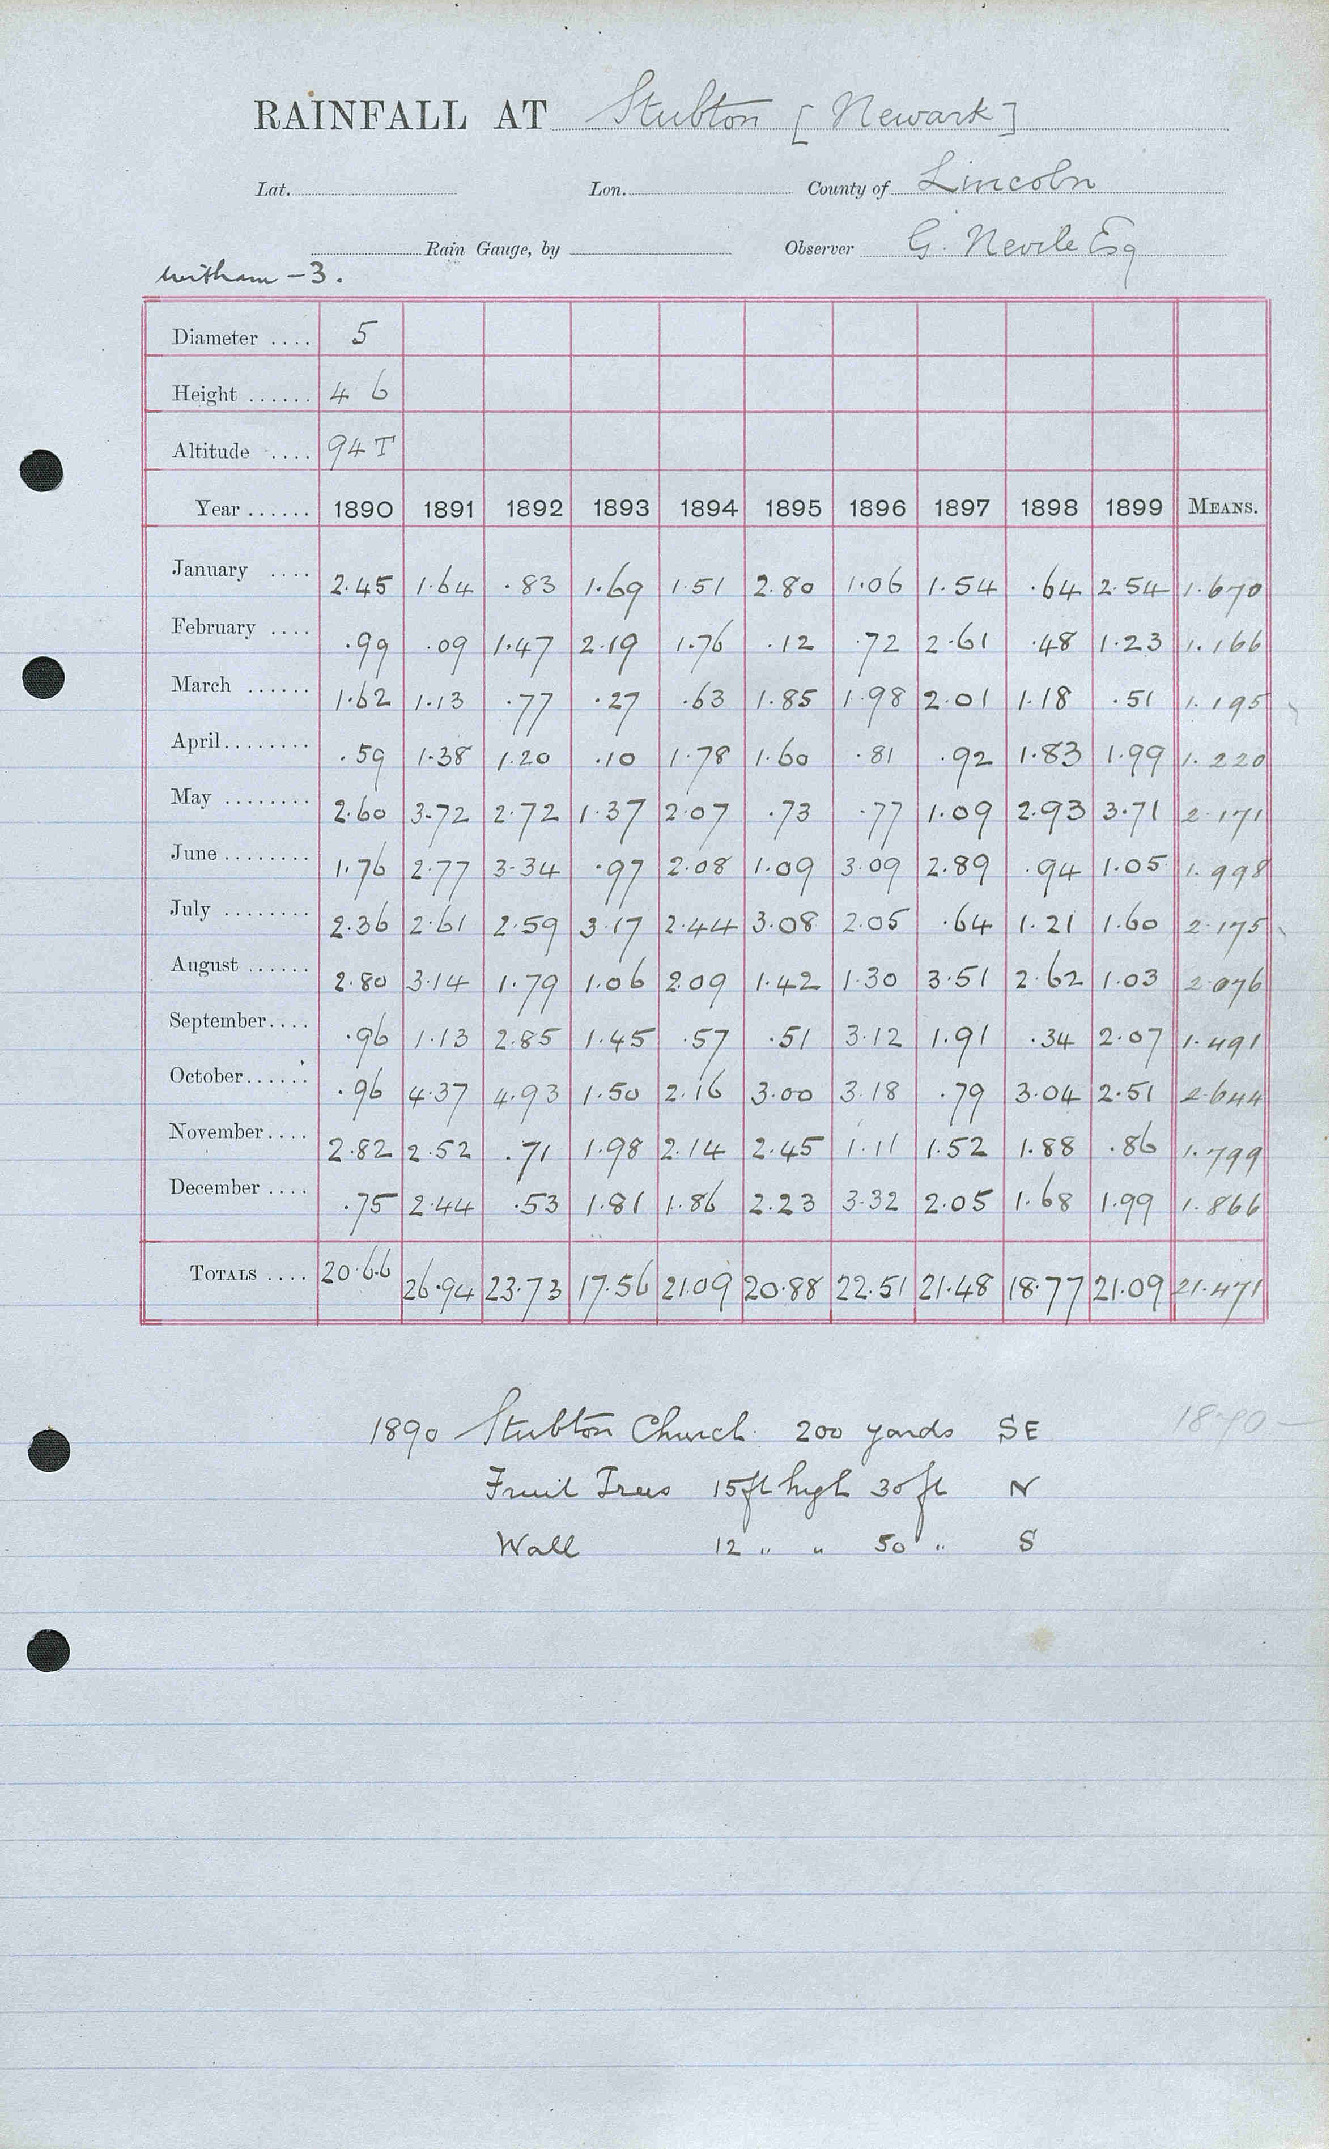 RAINFALL AT Stubton [Newark]
Lat. Lon. County of Lincoln
Rain Gauge, by Observer G. Nevile Esq
Witham - 3.
Diameter .... 5
Height ...... 4 6
Altitude .... 94 T
Year ...... 1890 1891 1892 1893 1894 1895 1896 1897 1898 1899 MEANS.
January .... 2.45 1.64 .83 1.69 1.51 2.80 1.06 1.54 .64 2.54 1.670
February .... .99 .09 1.47 2.19 1.76 .12 .72 2.61 .48 1.23 1.166
March ...... 1.62 1.13 .77 .27 .63 1.85 1.98 2.01 1.18 .51 1.195
April........ .59 1.38 1.20 .10 1.78 1.60 .81 .92 1.83 1.99 1.220
May ........ 2.60 3.72 2.72 1.37 2.07 .73 .77 1.09 2.93 3.71 2.171
June ........ 1.76 2.77 3.34 .97 2.08 1.09 3.09 2.89 .94 1.05 1.998
July ........ 2.36 2.61 2.59 3.17 2.44 3.08 2.05 .64 1.21 1.60 2.175
August ...... 2.80 3.14 1.79 1.06 2.09 1.42 1.30 3.51 2.62 1.03 2.076
September.... .96 1.13 2.85 1.45 .57 .51 3.12 1.91 .34 2.07 1.491
October...... .96 4.37 4.93 1.50 2.16 3.00 3.18 .79 3.04 2.51 2.644
November.... 2.82 2.52 .71 1.98 2.14 2.45 1.11 1.52 1.88 .86 1.799
December .... .75 2.44 .53 1.81 1.86 2.23 3.32 2.05 1.68 1.99 1.866
TOTALS .... 20.66 26.94 23.73 17.56 21.09 20.88 22.51 21.48 18.77 21.09 21.471
1890 Stubton Church 200 yards SE 1890 -
Fruit Trees 15ft high 30 ft N
Wall 12 " " 50 " S